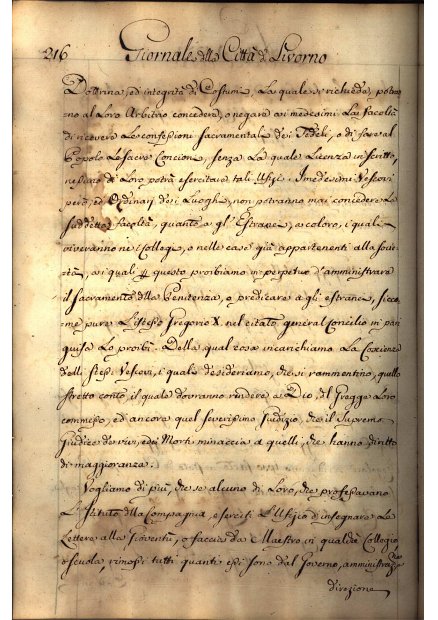 216 Giornale della Città di Livorno
Dottrina, ed integrità di Costumi, La quale si richieda, potran
no al Loro Arbitrio concedere, o negare ai medesimi La Facoltà
di ricevere Le confessioni sacramentali dei Fedeli, o di fare al
Popolo Le sacre Concioni, senza La quale Licenza in scritto,
nessuno di Loro potrà esercitare tali Uffizi. I medesimi Vescovi
però, ed Ordinarj dei Luoghi, non potranno mai concedere La
suddetta facoltà, quanto a gl'Estranei, a coloro, i quali
viveranno ne i Collegi, o nelle case già appartenenti alla socie
tà, ai quali questo proibiamo in perpetuo d'amministrare
il Sacramento della Penitenza, o predicare a gli estranei, sicco
me pure L'istesso Gregorio X. nel citato general Concilio in pari
guisa Lo proibì. Della qual cosa incarichiamo La Coscienza
delli stessi Vescovi, i quali desideriamo, che si rammentino, quello
stretto conto, il quale dovranno rendere a Dio, del Gregge Loro
commesso, ed ancora quel severissimo Judizio, che il Supremo
Giudice de vivi, e dei Morti minaccia a quelli, che hanno diritto
di maggioranza.
Vogliamo di più, che se alcuno di Loro, che professavano
L'istituto della Compagnia, eserciti L'Ufizio d'insegnare Le
Lettere alla Gioventù, o faccia da Maestro in qualche Collegio
e scuola, rimossi tutti quanti essi sono dal Governo, amministrazione
direzione